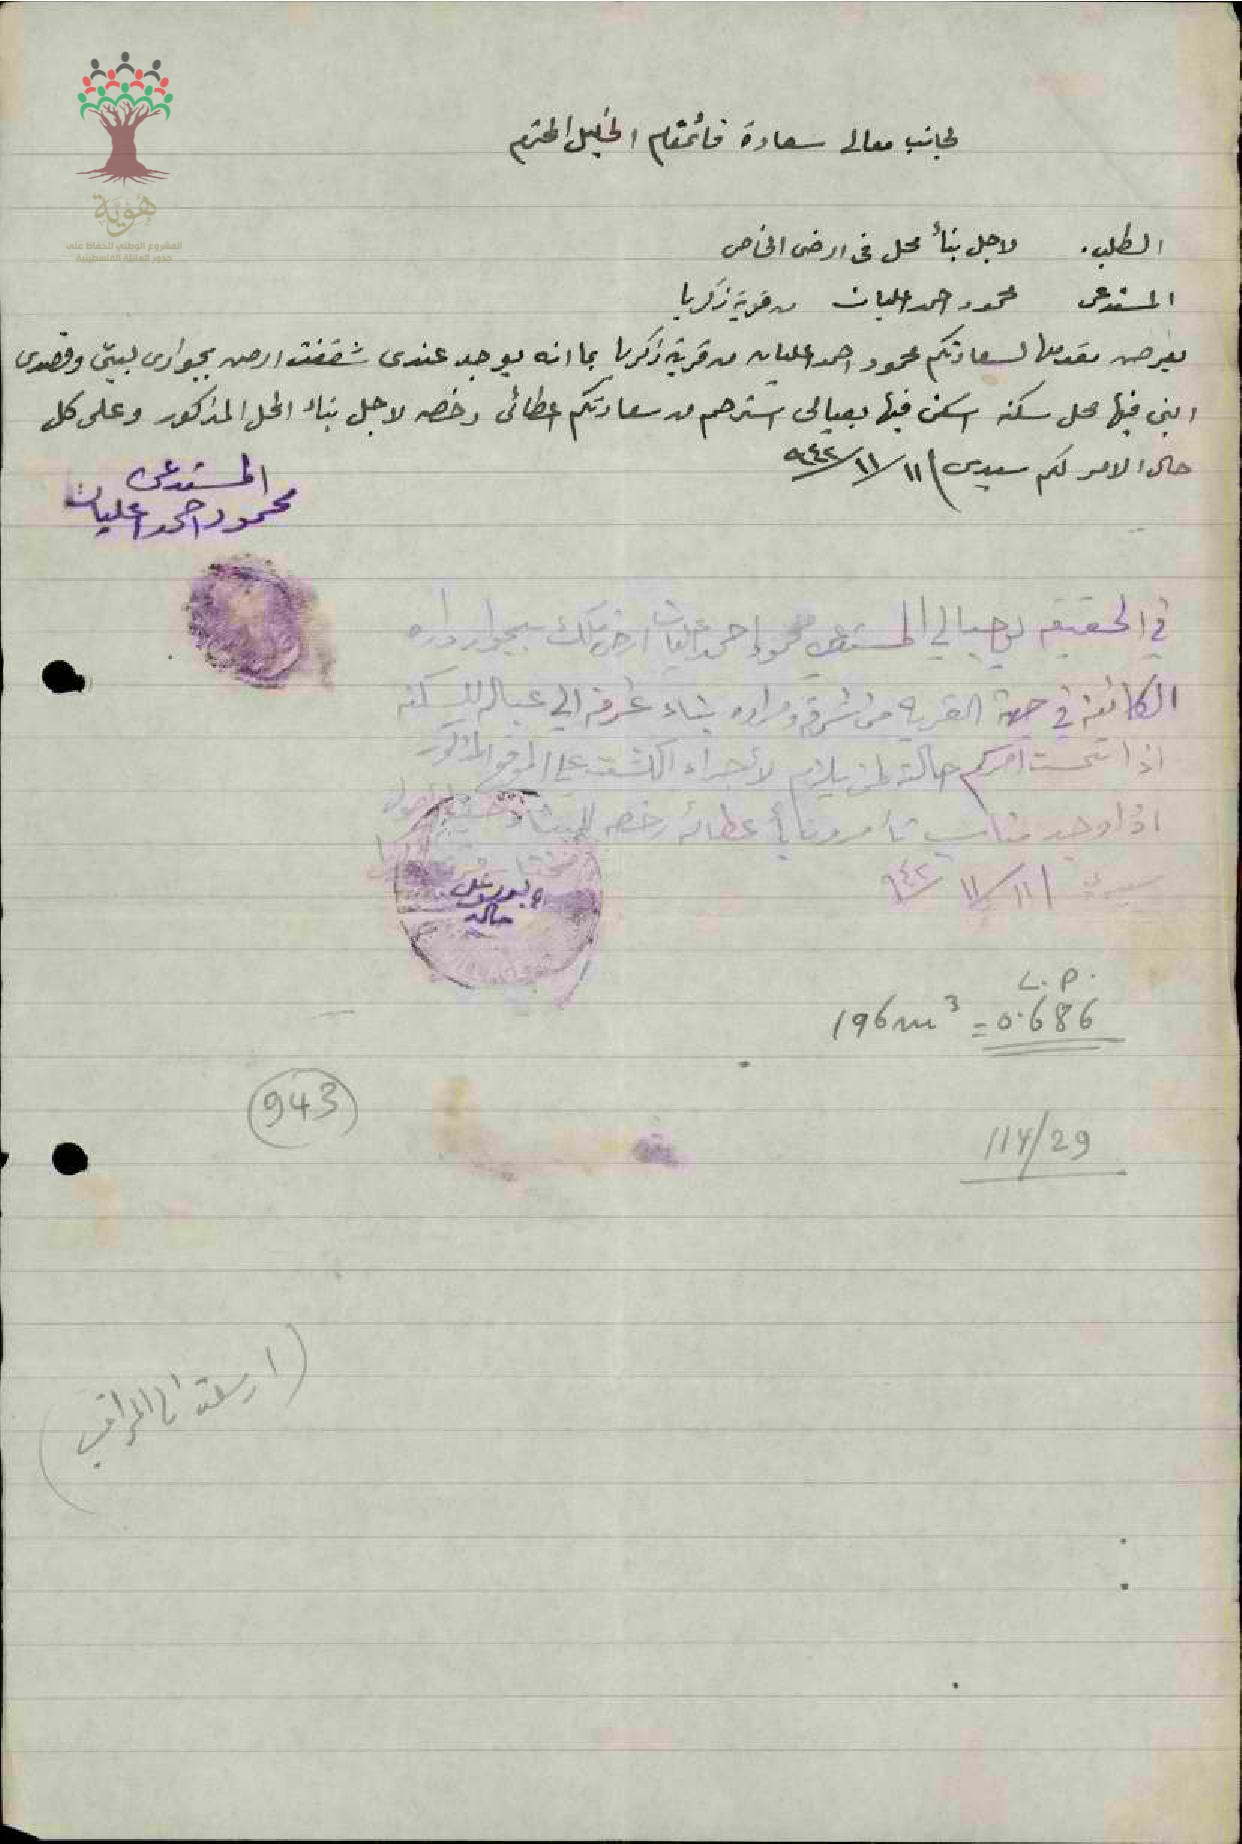 هوية
المشروع الوطني للحفاظ على
جذور العائلة الفلسطينية
لجانب معالي سعادة قائمقام الخليل المحترم
الطلب . لاجل بنأ محل في ارضي الخاص
المستدعي محمود احمد اعليان من قرية زكريا
يعرض مقدمها لسعادتكم محمود احمد اعليان من قرية زكريا بما انه يوجد عندي شقفت ارض بجواري لبيتي وقصدي
ابني فيها محل سكنه اسكن فيها بعيالي استرحم من سعادتكم اعطائي رخصه لاجل بناء المحل المذكور وعلى كل
حال الامر لكم سيدي ١١/١١/٩٤٢
المستدعي
محمود احمد اعليان
في الحقيقه يوجد الى المستدعي محمود احمد اعليان ارض ملك بجوار داره
الكائنة في جهة القريه من شرق ومراده بناء غرفه الى عياله للسكنه
اذا حسن امركم حالة لمن يلزم لأجراء الكشف على الموقع المذكور
اذا وجد مناسب تأمرونا بأعطائه رخصه للبناء
سيدي ١١/١١/٩٤٢
L.P.
196 m³ = 0.686
943
114/29
(ارسلت الى المراقب)